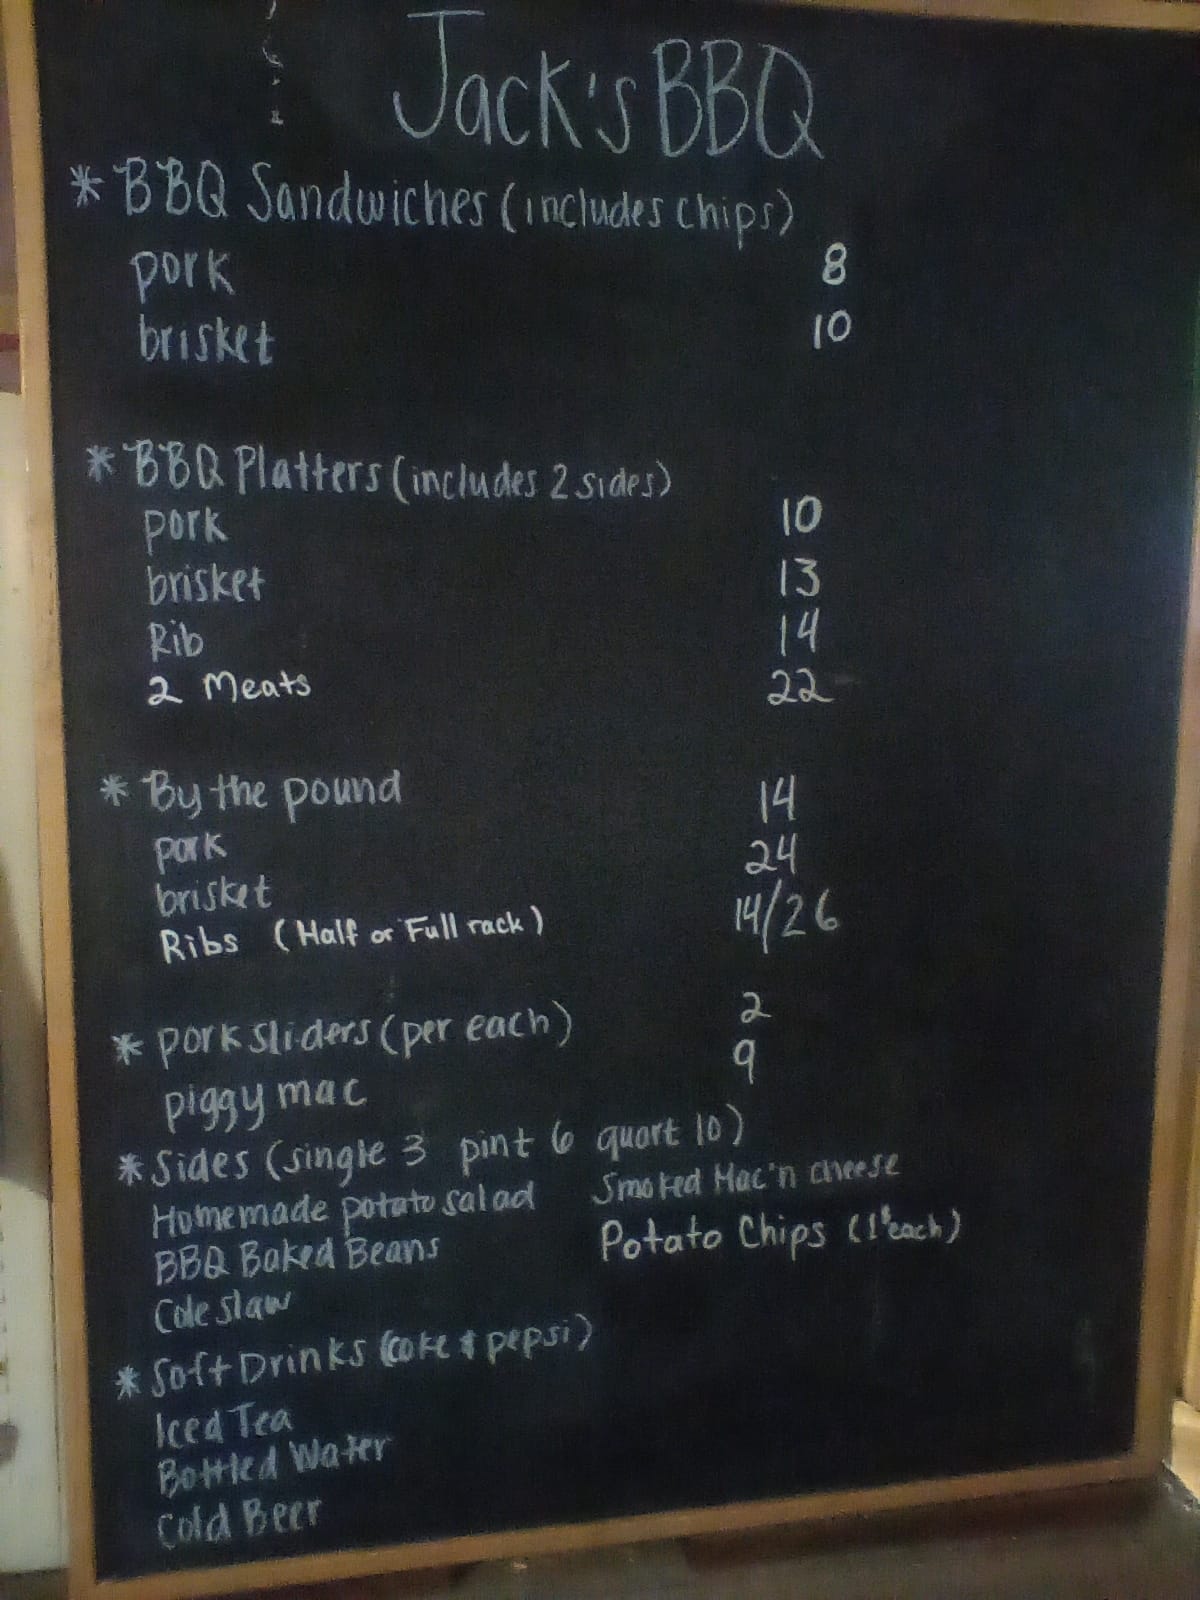 Jack's BBQ
* BBQ Sandwiches (includes chips)
pork 8
brisket 10
* BBQ Platters (includes 2 sides)
pork 10
brisket 13
Rib 14
2 Meats 22
* By the pound
pork 14
brisket 24
Ribs (Half or Full rack) 14/26
* pork sliders (per each) 2
piggy mac 9
* Sides (single 3 pint 6 quart 10)
Homemade potato salad Smoked Mac'n cheese
BBQ Baked Beans Potato Chips (1$ each)
Cole slaw
* Soft Drinks (coke & pepsi)
Iced Tea
Bottled Water
Cold Beer